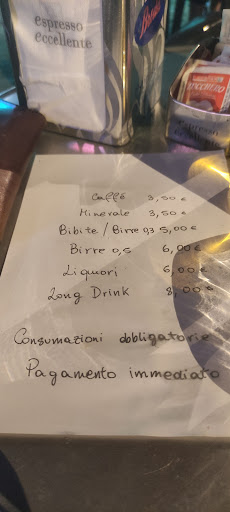 espresso
eccellente
Caffé 3,50 €
Minerale 3,50 €
Bibite / Birre 0,3 5,00 €
Birre 0,5 6,00 €
Liquori 6,00 €
Long Drink 8,00 €
Consumazioni obbligatorie
Pagamento immediato